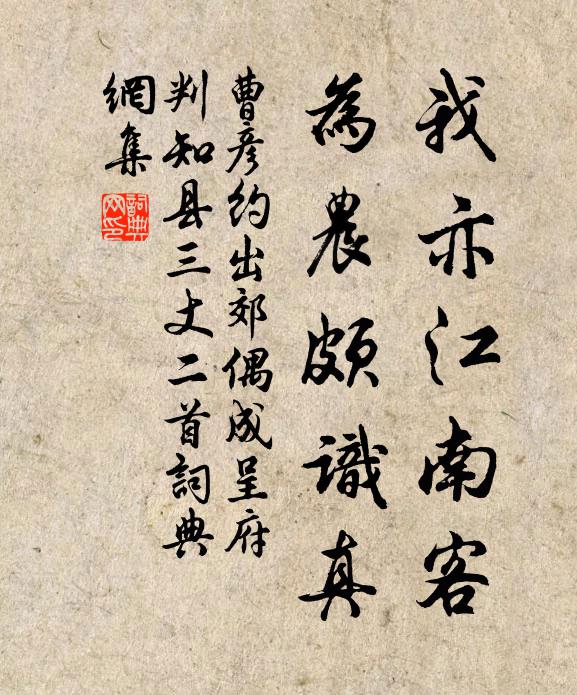 我亦江南客
為農頗識真
曹彦約出郊偶成呈府
判知县三丈二首詞典
網集
詞典
网印